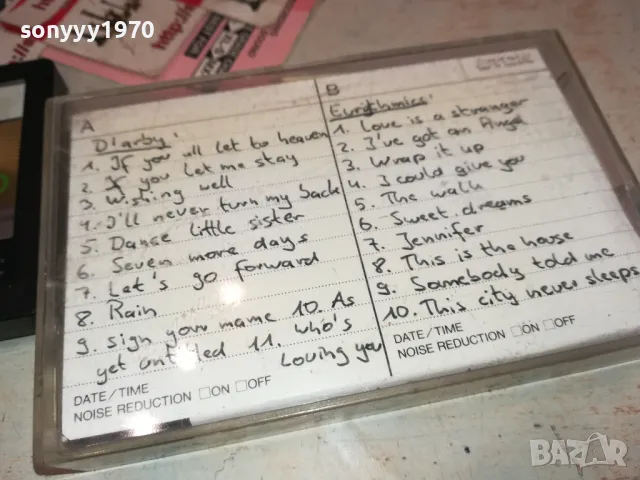 sonyyy1970
A
D'arby:
1. If you all let to heaven
2. If you let me stay
3. Wishing well
4. I'll never turn my back
5. Dance little sister
6. Seven more days
7. Let's go forward
8. Rain
9. sign your name 10. As
yet untitled 11. Who's
Loving you
DATE/TIME
NOISE REDUCTION □ON □OFF
B
Eurythmics:
1. Love is a stranger
2. I've got an Angel
3. Wrap it up
4. I could give you
5. The walk
6. Sweet dreams
7. Jennifer
8. This is the house
9. Somebody told me
10. This city never sleeps
DATE/TIME
NOISE REDUCTION □ON □OFF
BAZAR